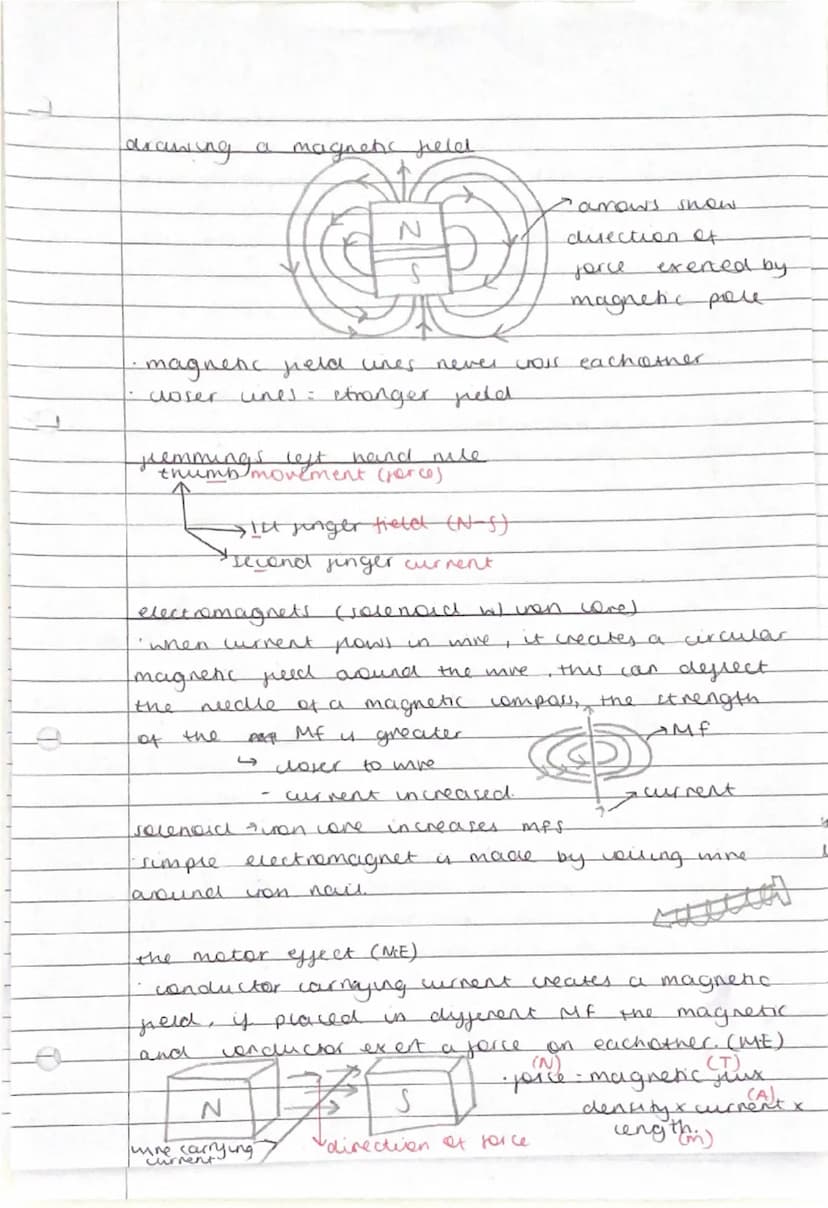 drawing a magnetic field
N
S
arrows show
direction of
force exerted by
magnetic pole
· magnetic field lines never cross eachother
· closer lines = stronger field
flemmings left hand rule
thumb movement (force)
1st finger field (N-S)
second finger current
electromagnets (solenoid w/ iron core)
· when current flows in wire, it creates a circular
magnetic field around the wire, this can deflect
the needle of a magnetic compass, the strength
of the MF is greater
↳ closer to wire
- current increased.
→ MF
→ current
solenoid → iron core increases MFS
· simple electromagnet is made by coiling wire
around iron nail.
the motor effect (ME)
· conductor carrying current creates a magnetic
field, if placed in different MF the magnetic
and conductor exert a force on eachother. (ME)
N
S
wire carrying
current
direction of force
(N) (T)
· force = magnetic flux
(A)
density x current x
length. (m)